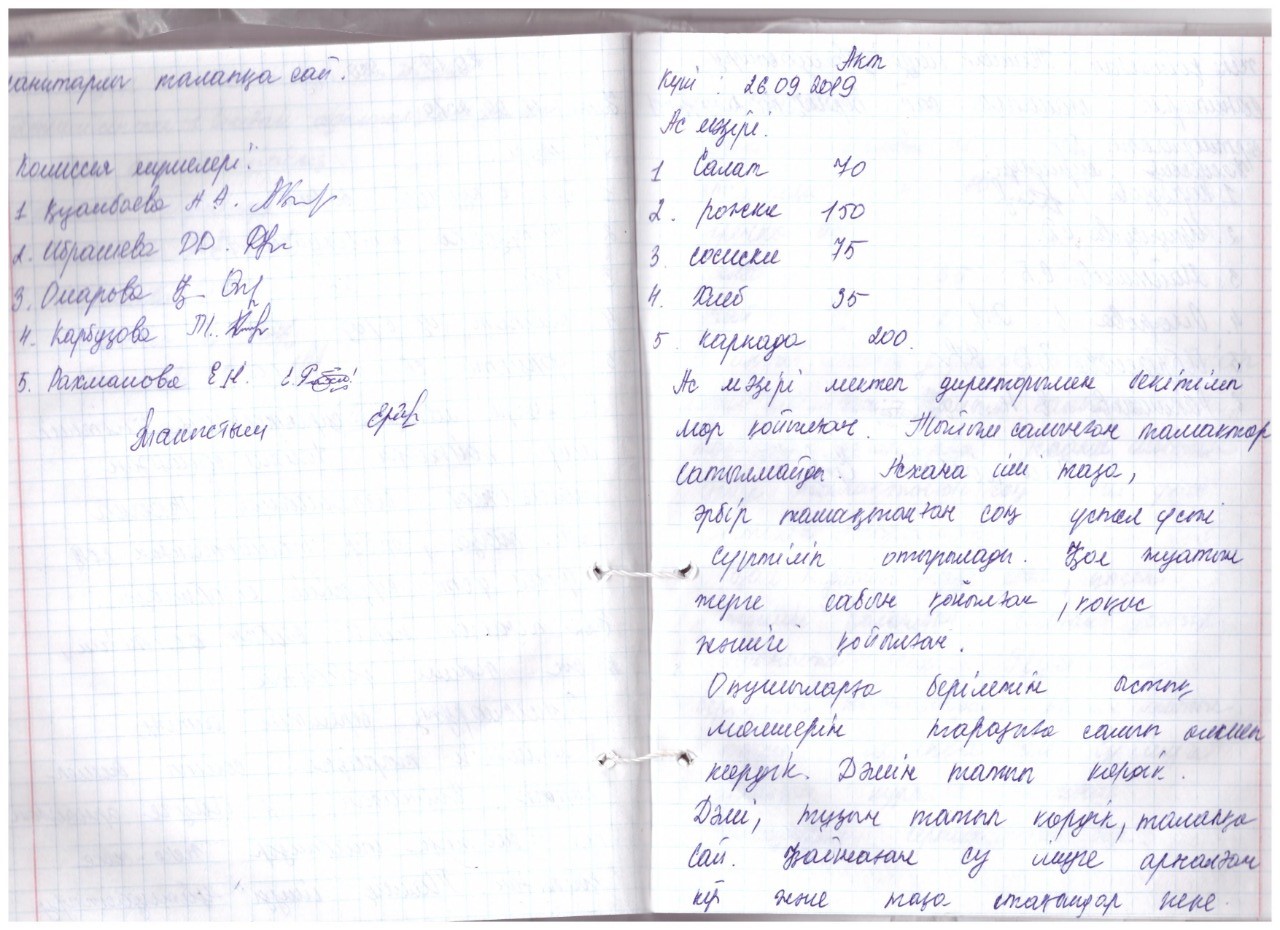 санитарлы талапқа сай.
Комиссия мүшелері:
1 Қуанбаева А А.
2. Ибрашева Д.D.
3. Омарова Қ.
4. Карбузова М.
5. Рахманова Е.Н.
Таныстым
Акт
Күні : 26.09.2019
Ас мәзірі.
1 Салат 70
2. рожки 150
3. сосиски 75
4. Хлеб 35
5. каркаде 200.
Ас мәзірі мектеп директорымен бекітіліп
мөр қойылған. Тыйым салынған тамақтар
сатылмайды. Асхана іші таза,
әрбір тамақтанған соң үстел үсті
сүртіліп отырылады. Қол жуатын
жерге сабын қойылған, қоқыс
жәшігі қойылған.
Оқушыларға берілетін ыстық
мөлшерін таразыға салып өлшеп
көрдік. Дәмін татып көрдік.
Дәмі, тұзын татып көрдік, талапқа
сай. Қайнаған су ішуге арналған
және таза стақандар және